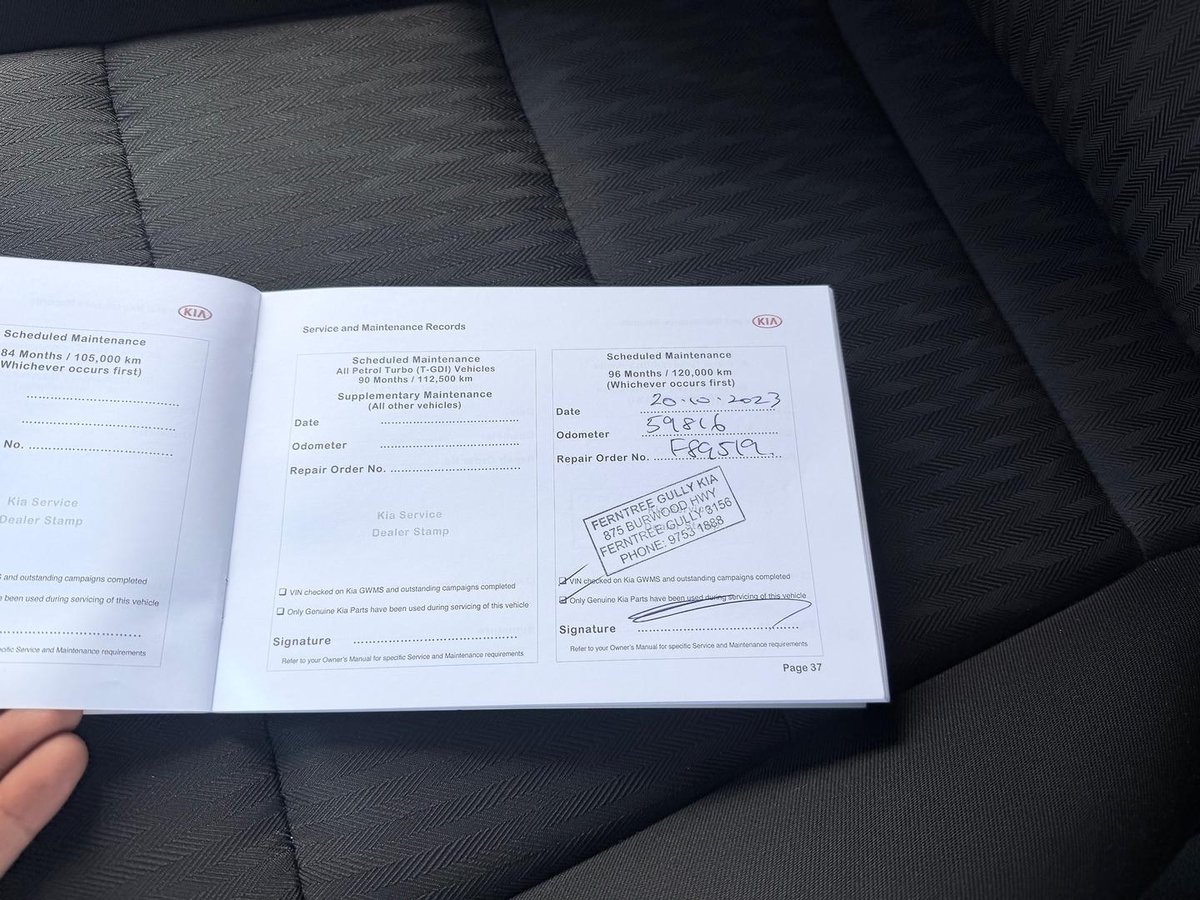 KIA
Scheduled Maintenance
84 Months / 105,000 km
Whichever occurs first)
No.
Kia Service
Dealer Stamp
and outstanding campaigns completed
been used during servicing of this vehicle
Service and Maintenance Requirements
Service and Maintenance Records
KIA
Scheduled Maintenance
All Petrol Turbo (T-GDI) Vehicles
90 Months / 112,500 km
Supplementary Maintenance
(All other vehicles)
Date
Odometer
Repair Order No.
Kia Service
Dealer Stamp
VIN checked on Kia GWMS and outstanding campaigns completed
Only Genuine Kia Parts have been used during servicing of this vehicle
Signature
Refer to your Owner's Manual for specific Service and Maintenance requirements
Scheduled Maintenance
96 Months / 120,000 km
(Whichever occurs first)
Date 20.10.2023
Odometer 59816
Repair Order No. F89519.
FERNTREE GULLY KIA
875 BURWOOD HWY
FERNTREE GULLY 3156
PHONE: 9753 1888
VIN checked on Kia GWMS and outstanding campaigns completed
Only Genuine Kia Parts have been used during servicing of this vehicle
Signature
Refer to your Owner's Manual for specific Service and Maintenance requirements
Page 37